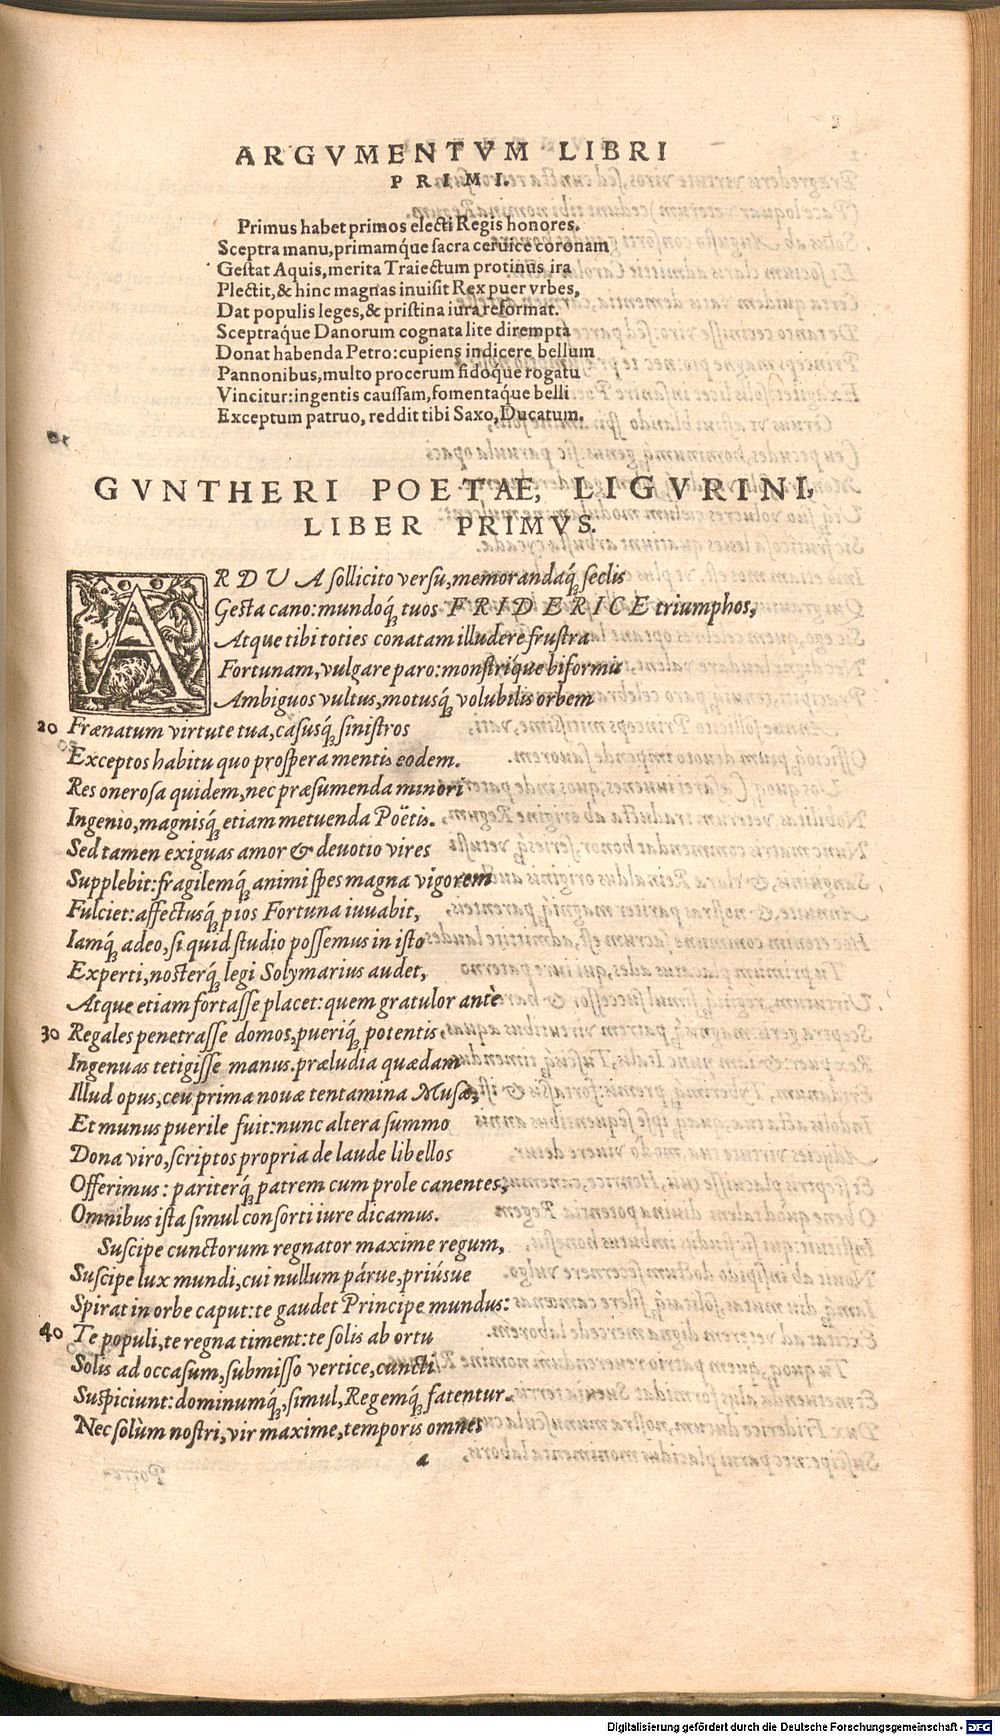 ARGVMENTVM LIBRI
PRIMI.
Primus habet primos electi Regis honores.
Sceptra manu, primamq́ue sacra ceruice coronam
Gestat Aquis, merita Traiectum protinus ira
Plectit, & hinc magnas inuisit Rex puer vrbes,
Dat populis leges, & pristina iura reformat.
Sceptraq́ue Danorum cognata lite dirempta
Donat habenda Petro: cupiens indicere bellum
Pannonibus, multo procerum fidoque rogatu
Vincitur: ingentis caussam, fomentaq́ue belli
Exceptum patruo, reddit tibi Saxo, Ducatum.
GVNTHERI POETAE, LIGVRINI,
LIBER PRIMVS.
ARDUA sollicito versu, memorandaq́; seclis
Gesta cano: mundoq́; tuos FRIDERICE triumphos,
Atque tibi toties conatam illudere frustra
Fortunam, vulgare paro: monstriq́ue biformis
Ambiguos vultus, motusq́; volubilis orbem
20 Frænatum virtute tua, casusq́; sinistros
Exceptos habitu quo prospera mentis eodem.
Res onerosa quidem, nec præsumenda minori
Ingenio, magnisq́; etiam metuenda Poëtis.
Sed tamen exiguas amor & deuotio vires
Supplebit: fragilemq́; animi spes magna vigorem
Fulciet: affectusq́; pios Fortuna iuuabit,
Iamq́; adeo, si quid studio possemus in isto
Experti, nosterq́; legi Solymarius audet,
Atque etiam fortasse placet: quem gratulor antè
30 Regales penetrasse domos, pueriq́; potentis,
Ingenuas tetigisse manus. præludia quædam
Illud opus, ceu prima nouæ tentamina Musæ,
Et munus puerile fuit: nunc altera summo
Dona viro, scriptos propria de laude libellos
Offerimus: pariterq́; patrem cum prole canentes,
Omnibus ista simul consorti iure dicamus.
Suscipe cunctorum regnator maxime regum,
Suscipe lux mundi, cui nullum párue, priúsue
Spirat in orbe caput: te gaudet Principe mundus:
40 Te populi, te regna timent: te solis ab ortu
Solis ad occasum, submisso vertice, cuncti
Suspiciunt: dominumq́;, simul, Regemq́; fatentur.
Nec solùm nostri, vir maxime, temporis omnes
a
Digitalisierung gefördert durch die Deutsche Forschungsgemeinschaft - DFG